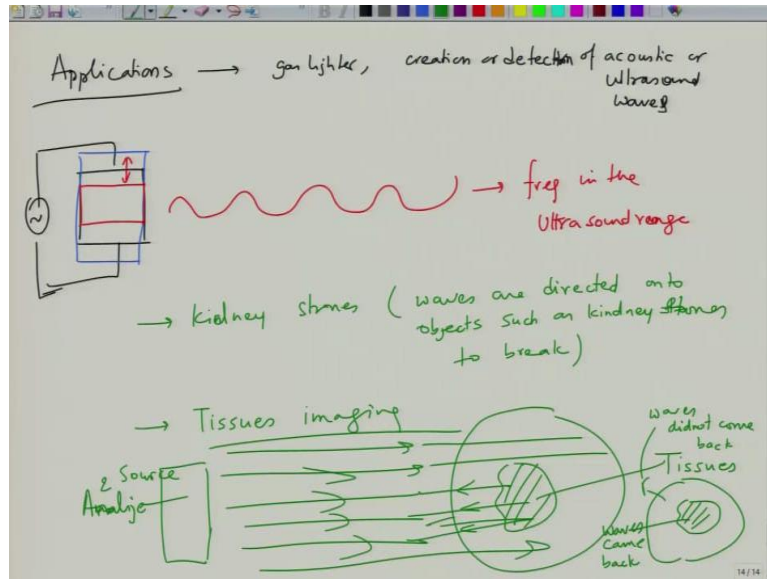 Applications → gas lighter, creation or detection of acoustic or
ultrasound
waves
~
→ freq in the
Ultrasound range
→ kidney stones (waves are directed onto
objects such as kindney stones
to break)
→ Tissues imaging
waves
didnot come
back
Source
&
Analize
Tissues
waves
came
back
14/14